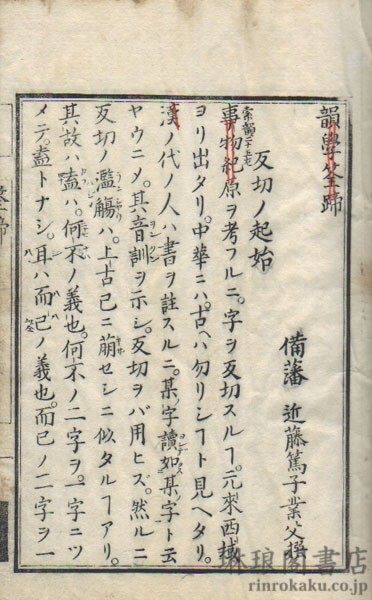 韻學筌蹄
備藩 近藤篤子業父撰
反切ノ起始
事物紀原ヲ考フルニ。字ヲ反切スルヿ。元來西域
ヨリ出タリ。中華ニハ。古ヘハ勿リシヿト見ヘタリ。
漢ノ代ノ人ハ書ヲ註スルニ。某ノ字讀如某字ト云
ヤウニメ。其音訓ヲ示シ。反切ヲバ用ヒズ。然ルニ
反切ノ濫觴ハ。上古已ニ萠セシニ似タルヿアリ。
其故ハ。盍ハ。何不ノ義也。何不ノ二字ヲ。一字ニツ
メテ。盍トナシ。耳ハ而已ノ義也。而已ノ二字ヲ一
琳琅閣書店
rinrokaku.co.jp